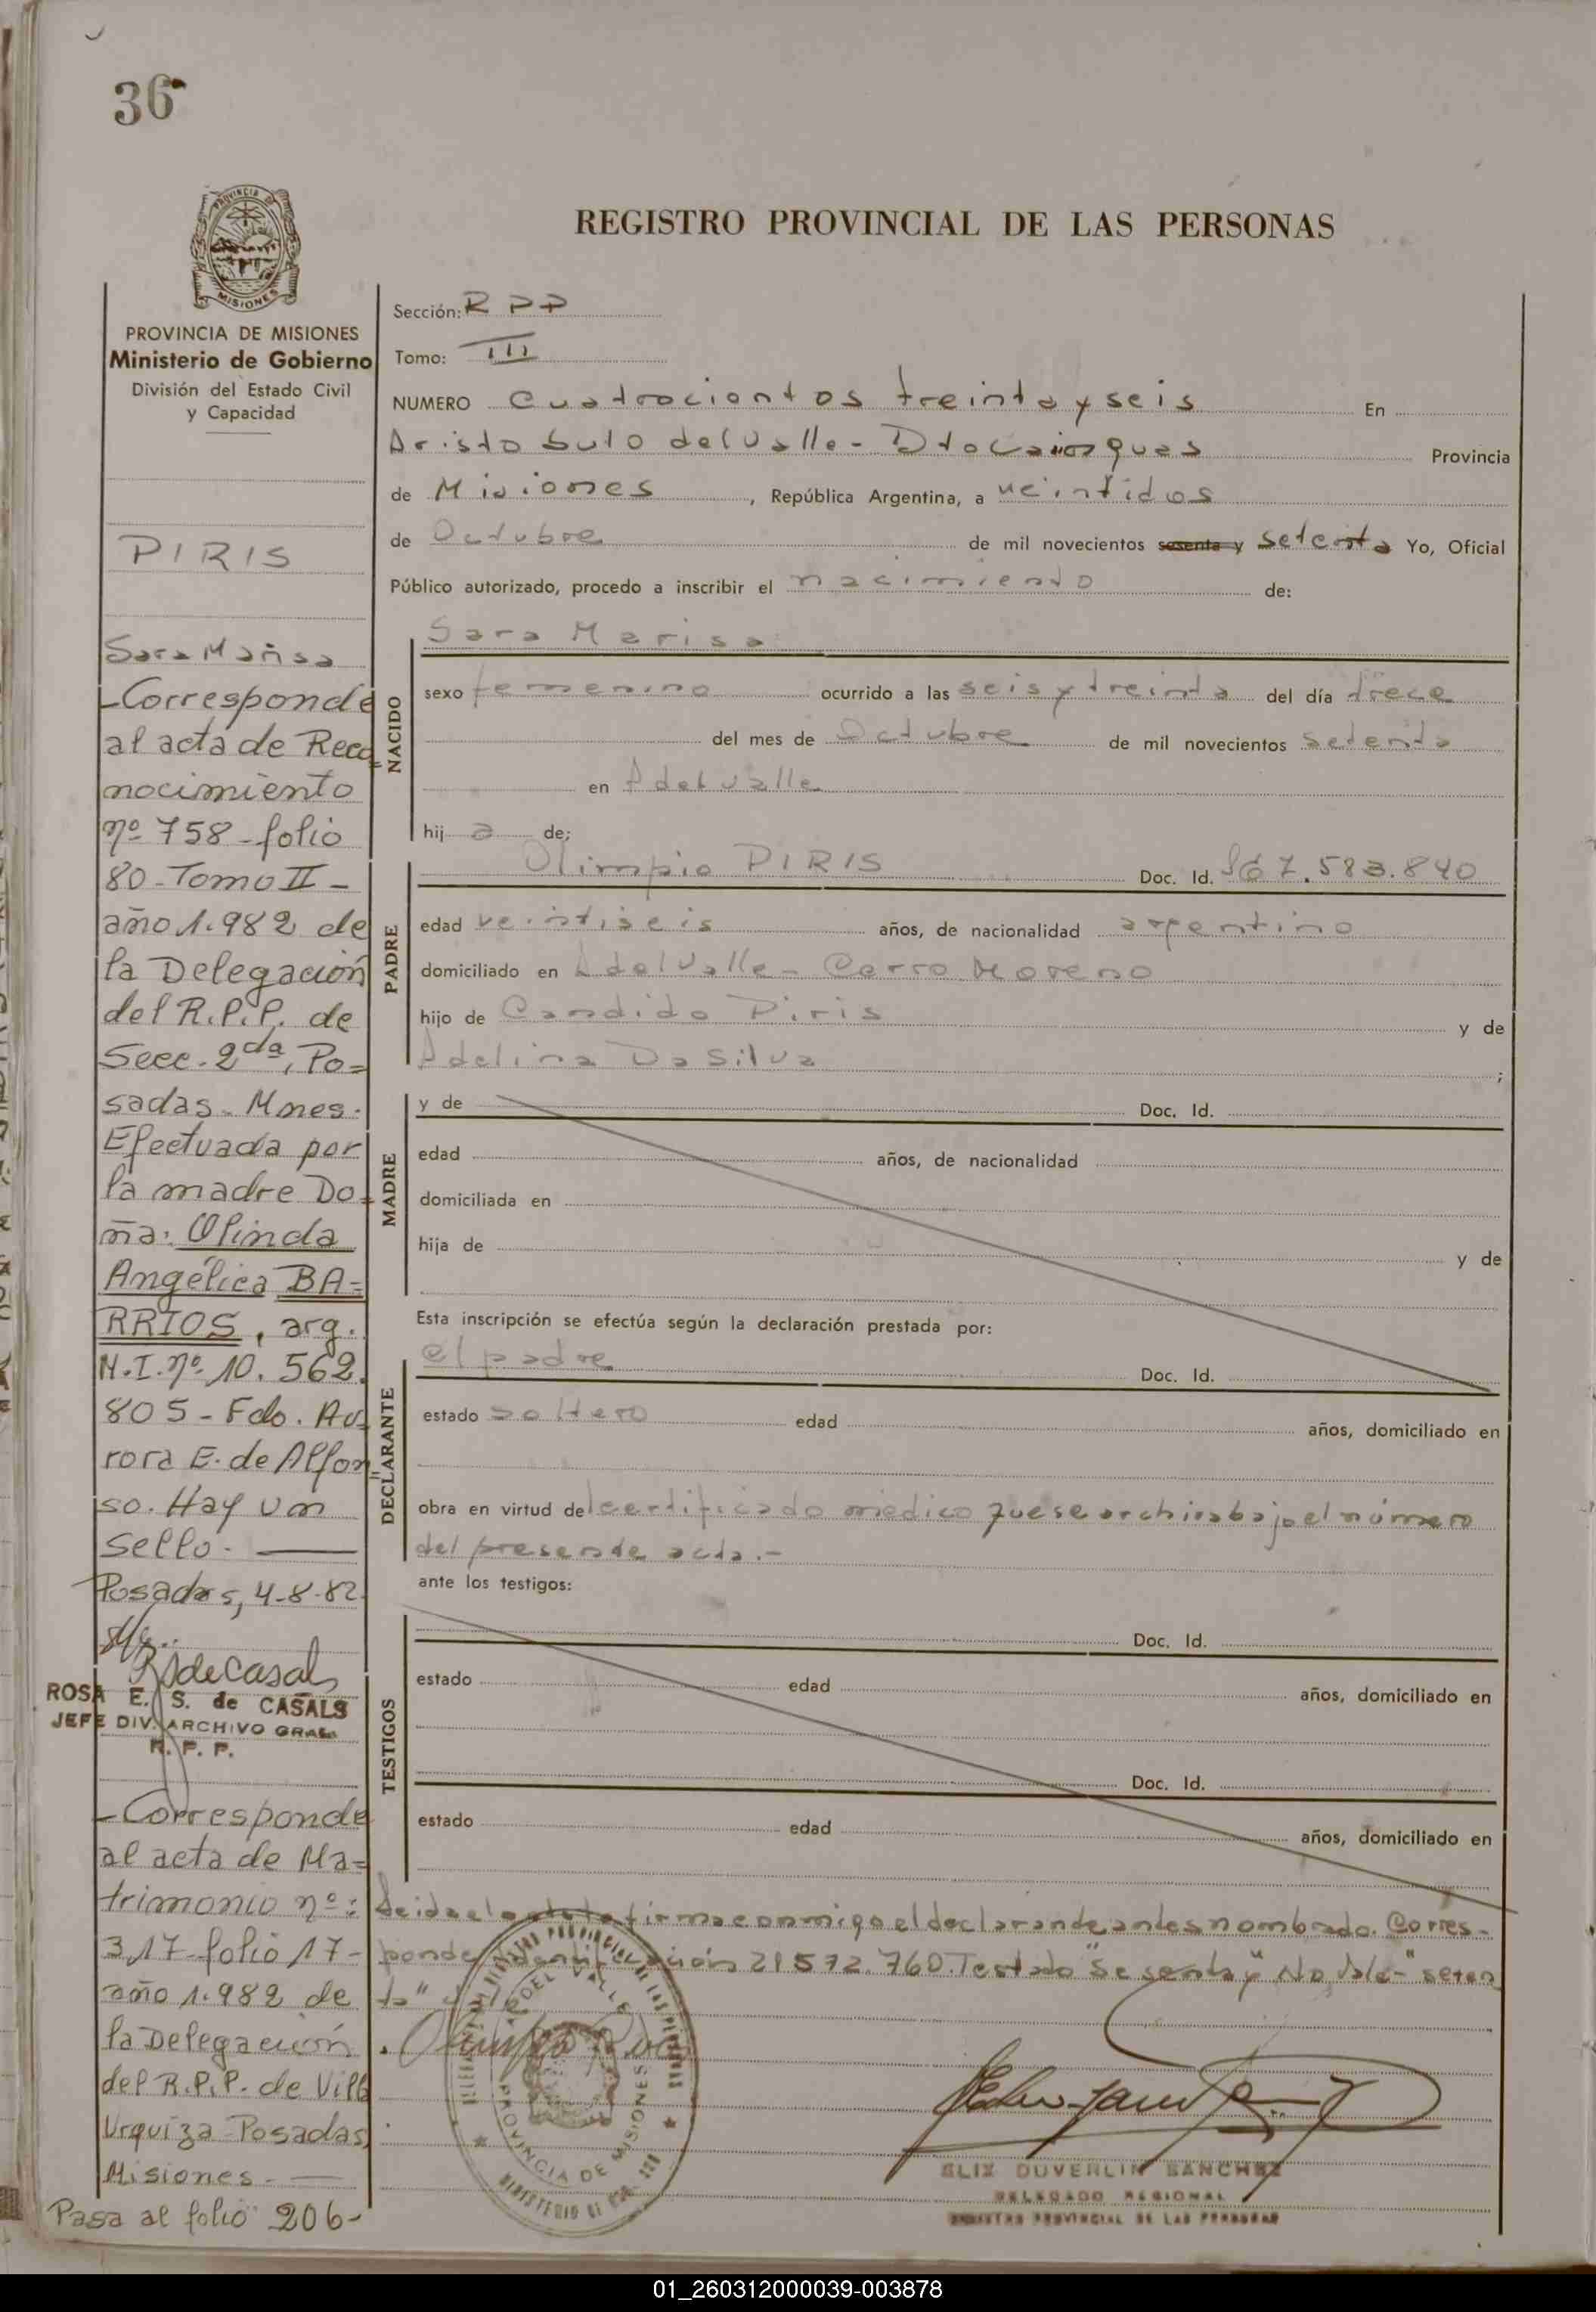 36
REGISTRO PROVINCIAL DE LAS PERSONAS
PROVINCIA DE MISIONES
Ministerio de Gobierno
División del Estado Civil
y Capacidad
PIRIS
Sara Marisa
- Corresponde
al acta de Reco=
nocimiento
nº 758 - folio
80 - Tomo II -
año 1.982 de
la Delegación
del R.P.P. de
Secc. 2da, Po=
sadas. Mnes.
Efectuada por
la madre Do=
ña: Olinda
Angélica BA=
RRIOS, arg.
M.I. nº 10.562.
805 - Fdo. Au=
rora E. de Alfon=
so. Hay un
sello. —
Posadas, 4-8-82.
ROSA E. S. de CASALS
JEFE DIV. ARCHIVO GRAL.
R. P. P.
- Corresponde
al acta de Ma=
trimonio nº:
317 - folio 17 -
año 1.982 de
la Delegación
del R.P.P. de Villa
Urquiza - Posadas,
Misiones. —
Pasa al folio 206-
Sección: R PP
Tomo: III
NUMERO Cuatrocientos treinta y seis En
Aristobulo del Valle - Dto Cainguas Provincia
de Misiones, República Argentina, a veintidos
de Octubre de mil novecientos sesenta y setenta Yo, Oficial
Público autorizado, procedo a inscribir el nacimiento de:
NACIDO
Sara Marisa
sexo femenino ocurrido a las seis y treinta del día trece
del mes de Octubre de mil novecientos setenta
en A del Valle
hij a de;
PADRE
Olimpio PIRIS Doc. Id. 7.583.840
edad veintiseis años, de nacionalidad argentino
domiciliado en A del Valle - Cerro Moreno
hijo de Candido Piris y de
Adelina Da Silva ;
MADRE
y de Doc. Id.
edad años, de nacionalidad
domiciliada en
hija de y de
Esta inscripción se efectúa según la declaración prestada por:
DECLARANTE
el padre Doc. Id.
estado soltero edad años, domiciliado en
obra en virtud del certificado médico que se archiva bajo el número
del presente acta.-
ante los testigos:
TESTIGOS
Doc. Id.
estado edad años, domiciliado en
Doc. Id.
estado edad años, domiciliado en
Leida el acta la firma conmigo el declarante antes nombrado. Corres-
ponde identificación 21.572.760. Testado "sesenta y" No Vale - "seten
ta" vale
DEL VALLE
PROVINCIA DE MISIONES
ELIX DUVERLIN SANCHEZ
DELEGADO REGIONAL
REGISTRO PROVINCIAL DE LAS PERSONAS
01_260312000039-003878